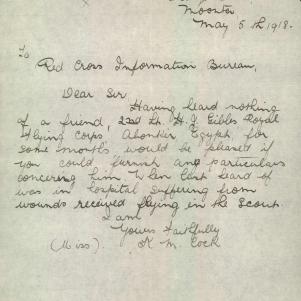 Moonta
May 5th 1918.
To
Red Cross Information Bureau,
Dear Sir,
Having heard nothing
of a friend, 2nd Lt. H. J. Gibbs Royal
Flying Corps, Aboukier Egypt, for
some months would be pleased if
you could furnish any particulars
concering him. When last heard of
was in hospital suffering from
wounds received flying in the Scout.
I am
Yours Faithfully
(Miss). K. M. Cock